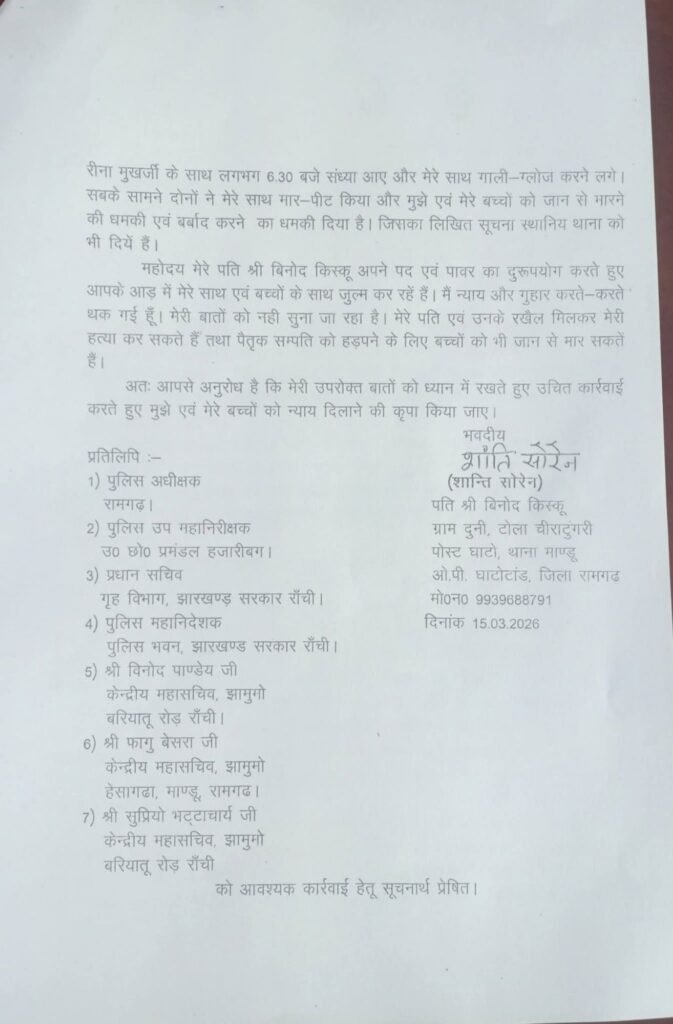 रीना मुखर्जी के साथ लगभग 6.30 बजे संध्या आए और मेरे साथ गाली–ग्लोज करने लगे।
सबके सामने दोनों ने मेरे साथ मार–पीट किया और मुझे एवं मेरे बच्चों को जान से मारने
की धमकी एवं बर्बाद करने का धमकी दिया है। जिसका लिखित सूचना स्थानिय थाना को
भी दियें हैं।
महोदय मेरे पति श्री बिनोद किस्कू अपने पद एवं पावर का दुरूपयोग करते हुए
आपके आड़ में मेरे साथ एवं बच्चों के साथ जुल्म कर रहें हैं। मैं न्याय और गुहार करते–करते
थक गई हूँ। मेरी बातों को नही सुना जा रहा है। मेरे पति एवं उनके रखैल मिलकर मेरी
हत्या कर सकते हैं तथा पैतृक सम्पति को हड़पने के लिए बच्चों को भी जान से मार सकतें
हैं।
अतः आपसे अनुरोध है कि मेरी उपरोक्त बातों को ध्यान में रखते हुए उचित कार्रवाई
करते हुए मुझे एवं मेरे बच्चों को न्याय दिलाने की कृपा किया जाए।
भवदीय
शांति सोरेन
(शान्ति सोरेन)
पति श्री बिनोद किस्कू
ग्राम दुनी, टोला चीराटुंगरी
पोस्ट घाटो, थाना माण्डू
ओ.पी. घाटोटांड, जिला रामगढ
मो0न0 9939688791
दिनांक 15.03.2026
प्रतिलिपि :–
1) पुलिस अधीक्षक
रामगढ़।
2) पुलिस उप महानिरीक्षक
उ0 छो0 प्रमंडल हजारीबग।
3) प्रधान सचिव
गृह विभाग, झारखण्ड़ सरकार राँची।
4) पुलिस महानिदेशक
पुलिस भवन, झारखण्ड सरकार राँची।
5) श्री विनोद पाण्डेय जी
केन्द्रीय महासचिव, झामुमो
बरियातू रोड़ राँची।
6) श्री फागु बेसरा जी
केन्द्रीय महासचिव, झामुमो
हेसागढा, माण्डू, रामगढ।
7) श्री सुप्रियो भट्टाचार्य जी
केन्द्रीय महासचिव, झामुमो
बरियातू रोड़ राँची
को आवश्यक कार्रवाई हेतू सूचनार्थ प्रेषित।